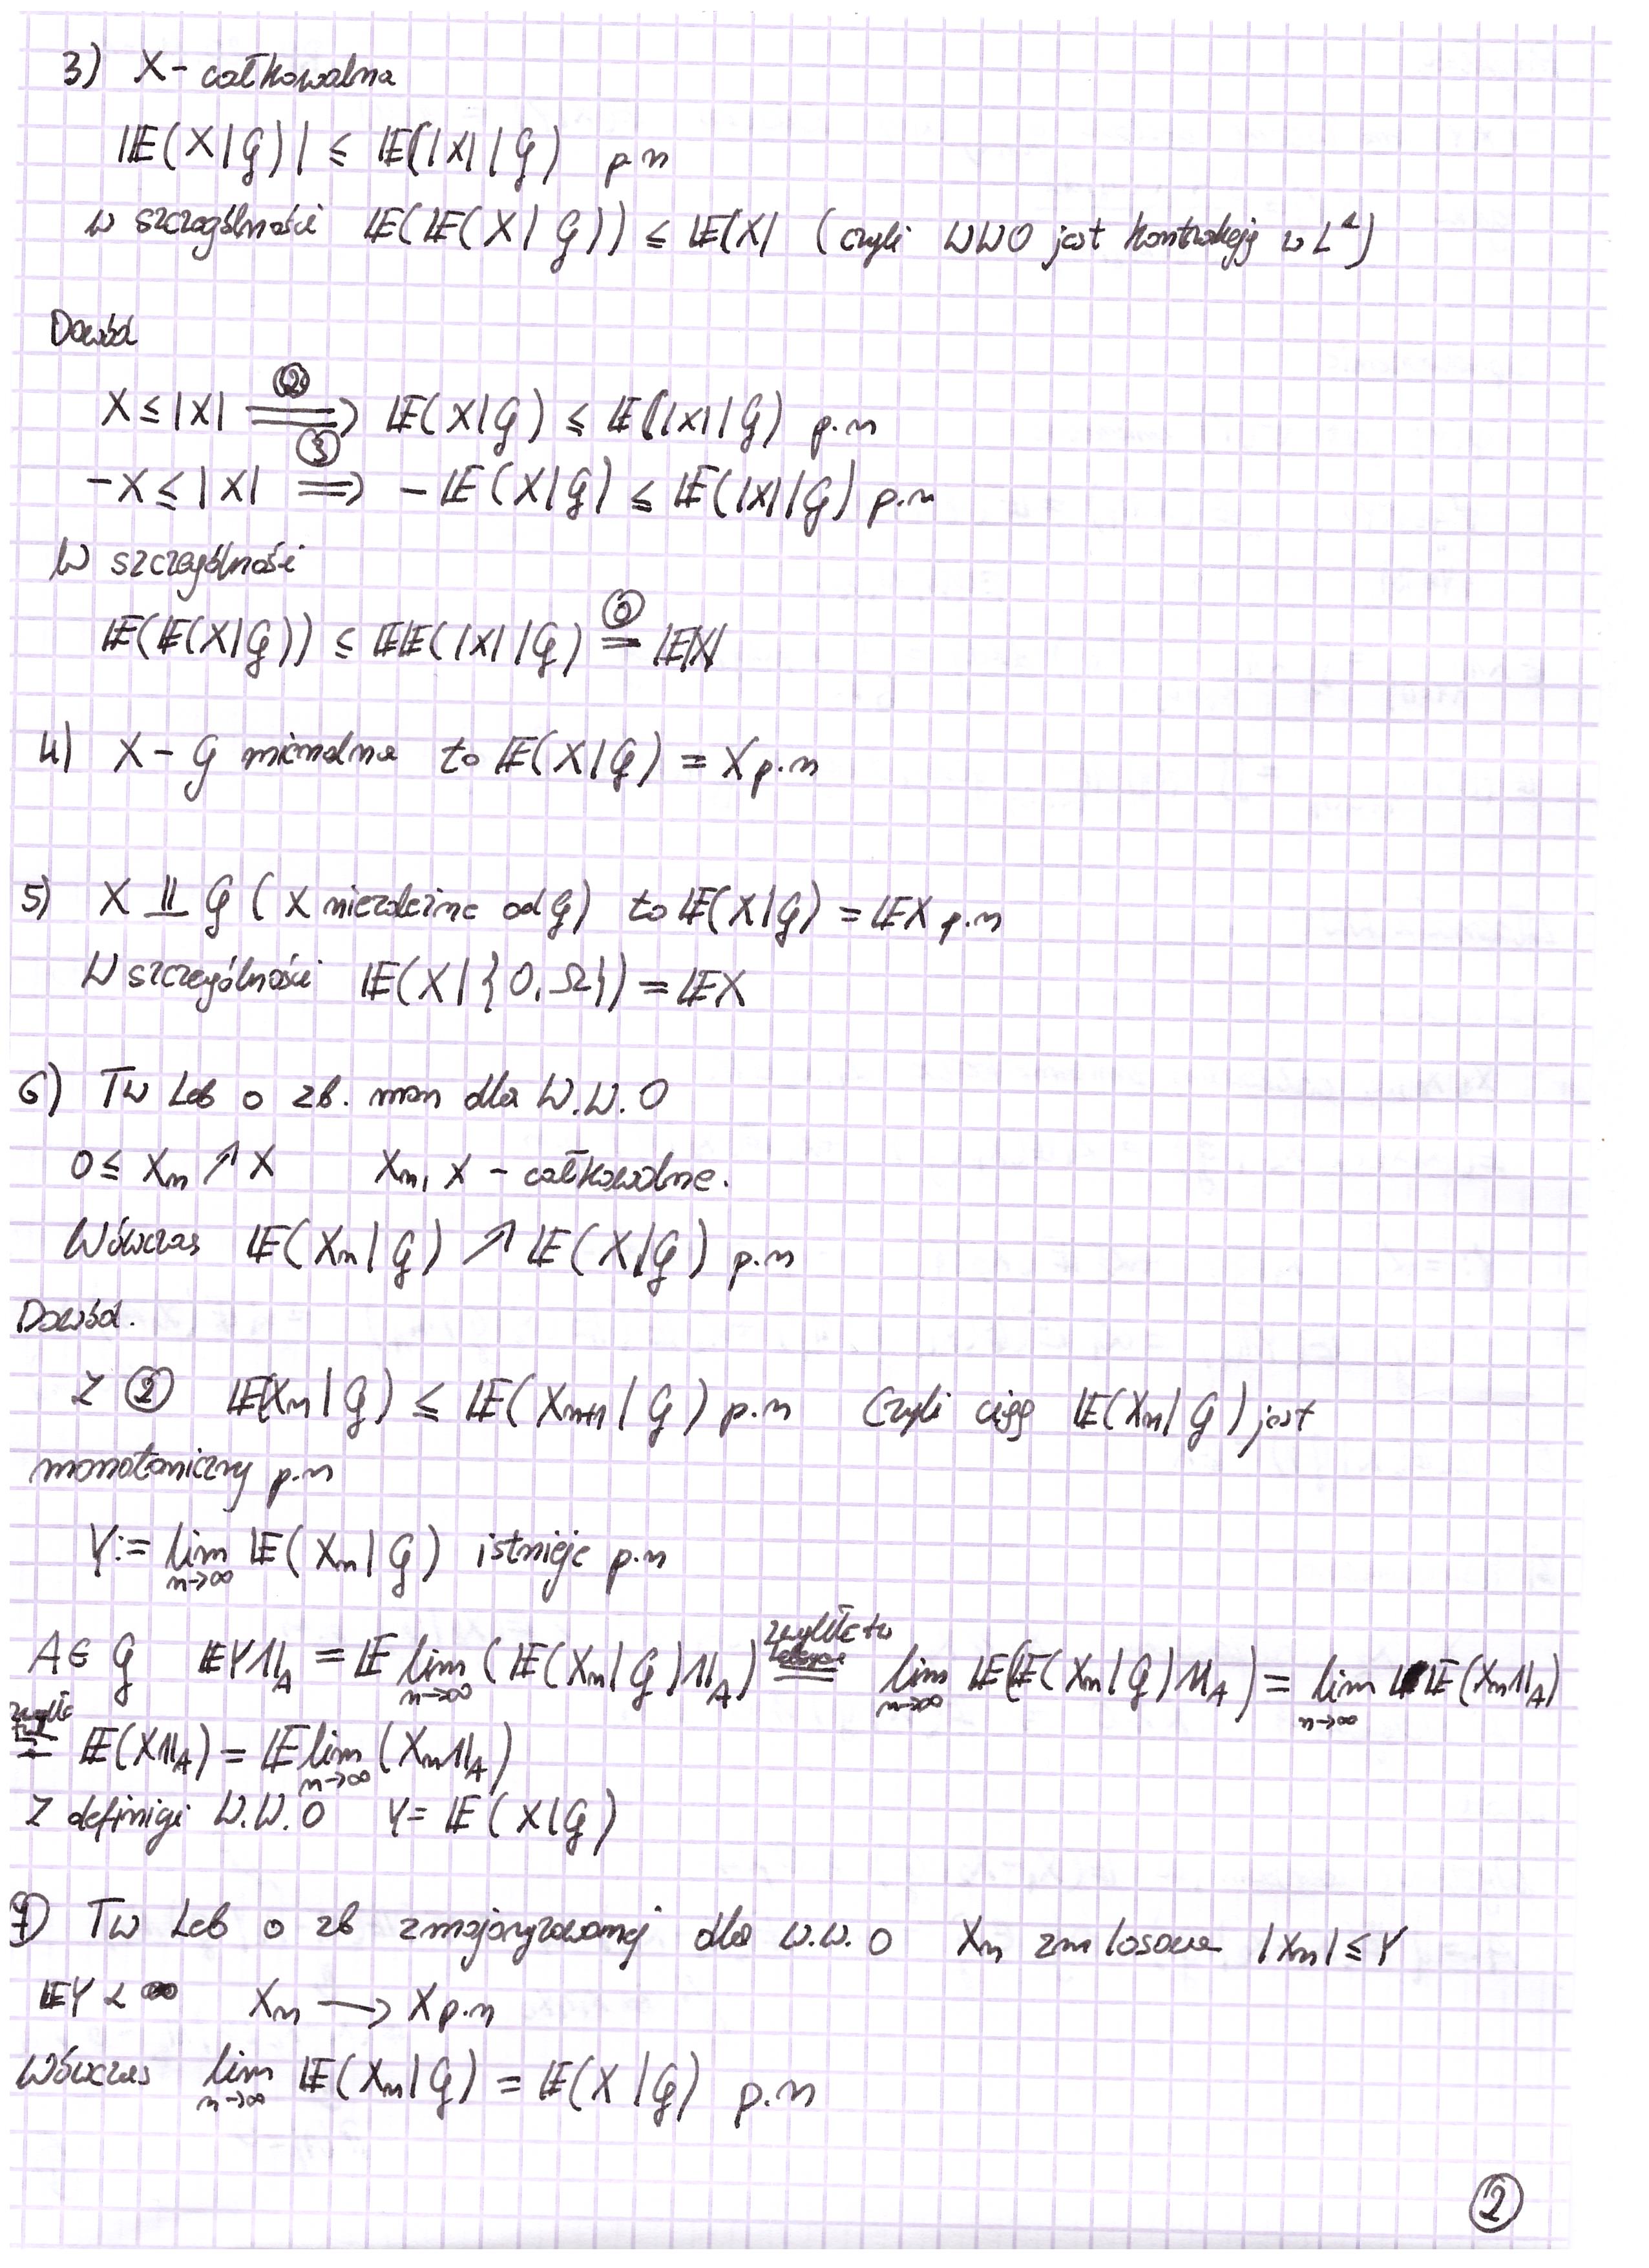 3) X - całkowalna
|𝔼(X|G)| ≤ 𝔼(|X| | G) p.n
w szczególności 𝔼(𝔼(X|G)) ≤ 𝔼|X| (czyli WWO jest kontrakcją w L¹)
Dowód
X ≤ |X| ⟹ ② 𝔼(X|G) ≤ 𝔼(|X| | G) p.n
-X ≤ |X| ⟹ ③ -𝔼(X|G) ≤ 𝔼(|X| | G) p.n
W szczególności
𝔼(𝔼(X|G)) ≤ 𝔼𝔼(|X| | G) =⓪ 𝔼|X|
4) X - G mierzalna to 𝔼(X|G) = X p.n
5) X ⫫ G (X niezależne od G) to 𝔼(X|G) = 𝔼X p.n
W szczególności 𝔼(X|{0,Ω}) = 𝔼X
6) Tw Leb o zb. mon dla W.W.O
0 ≤ Xn ↗ X Xn, X - całkowalne.
Wówczas 𝔼(Xn|G) ↗ 𝔼(X|G) p.n
Dowód.
Z ② 𝔼(Xn|G) ≤ 𝔼(Xn+1|G) p.n Czyli ciąg 𝔼(Xn|G) jest
monotoniczny p.n
Y := lim n→∞ 𝔼(Xn|G) istnieje p.n
A ∈ G 𝔼Y𝟙A = 𝔼 lim n→∞ (𝔼(Xn|G)𝟙A) zwykłe tw = lim n→∞ 𝔼(𝔼(Xn|G)𝟙A) = lim n→∞ 𝔼(Xn𝟙A)
zwykłe tw = 𝔼(X𝟙A) = 𝔼 lim n→∞ (Xn𝟙A)
Z definicji W.W.O Y = 𝔼(X|G)
7) Tw Leb o zb zmajoryzowanej dla W.W.O Xn zm losowe |Xn| ≤ Y
𝔼Y < ∞ Xn → X p.n
Wówczas lim n→∞ 𝔼(Xn|G) = 𝔼(X|G) p.n
②